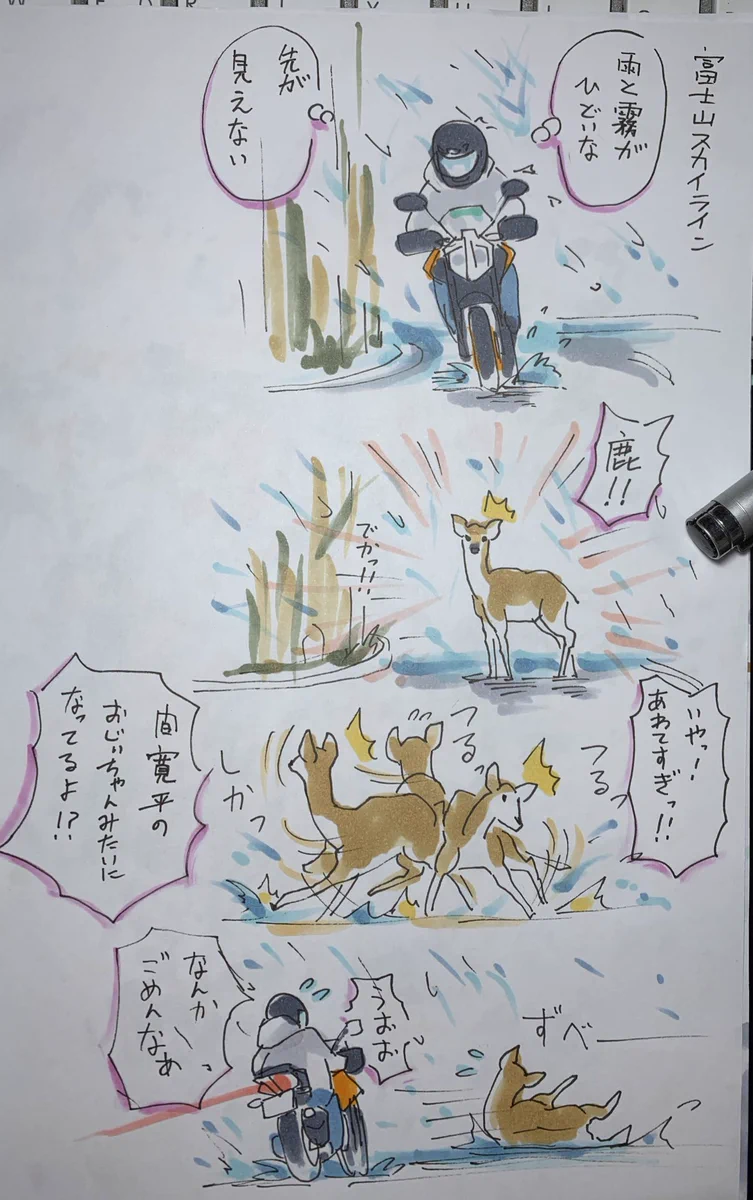 富士山スカイライン
雨と霧が
ひどいな
先が
見えない
鹿!!
でかっ!!
いやっ!
あわてすぎっ!!
つるっ
つるっ
しかっ
間寛平の
おじいちゃんみたいに
なってるよ!?
うおお
なんか
ごめんなぁ
ずべー